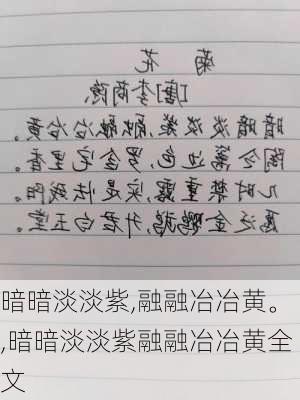 菊 花
[唐]李商隐
暗暗淡淡紫,融融冶冶黄。
陶令篱边色,罗含宅里香。
几时禁重露,实是怯残阳。
愿泛金鹦鹉,升君白玉堂。
暗暗淡淡紫,融融冶冶黄。
,暗暗淡淡紫融融冶冶黄全
文